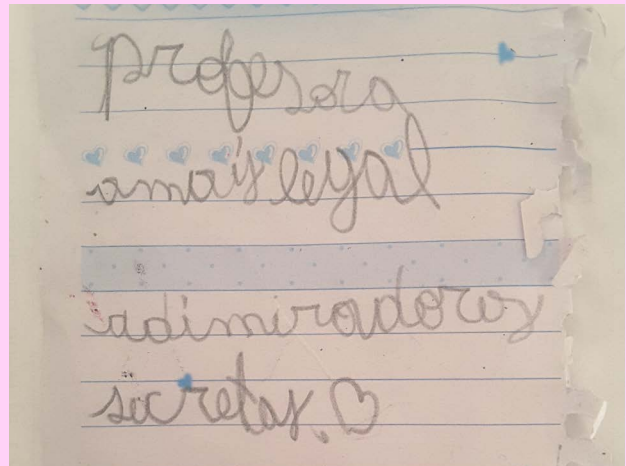 profesora
amais legal
adimiradoras
secretas.♡